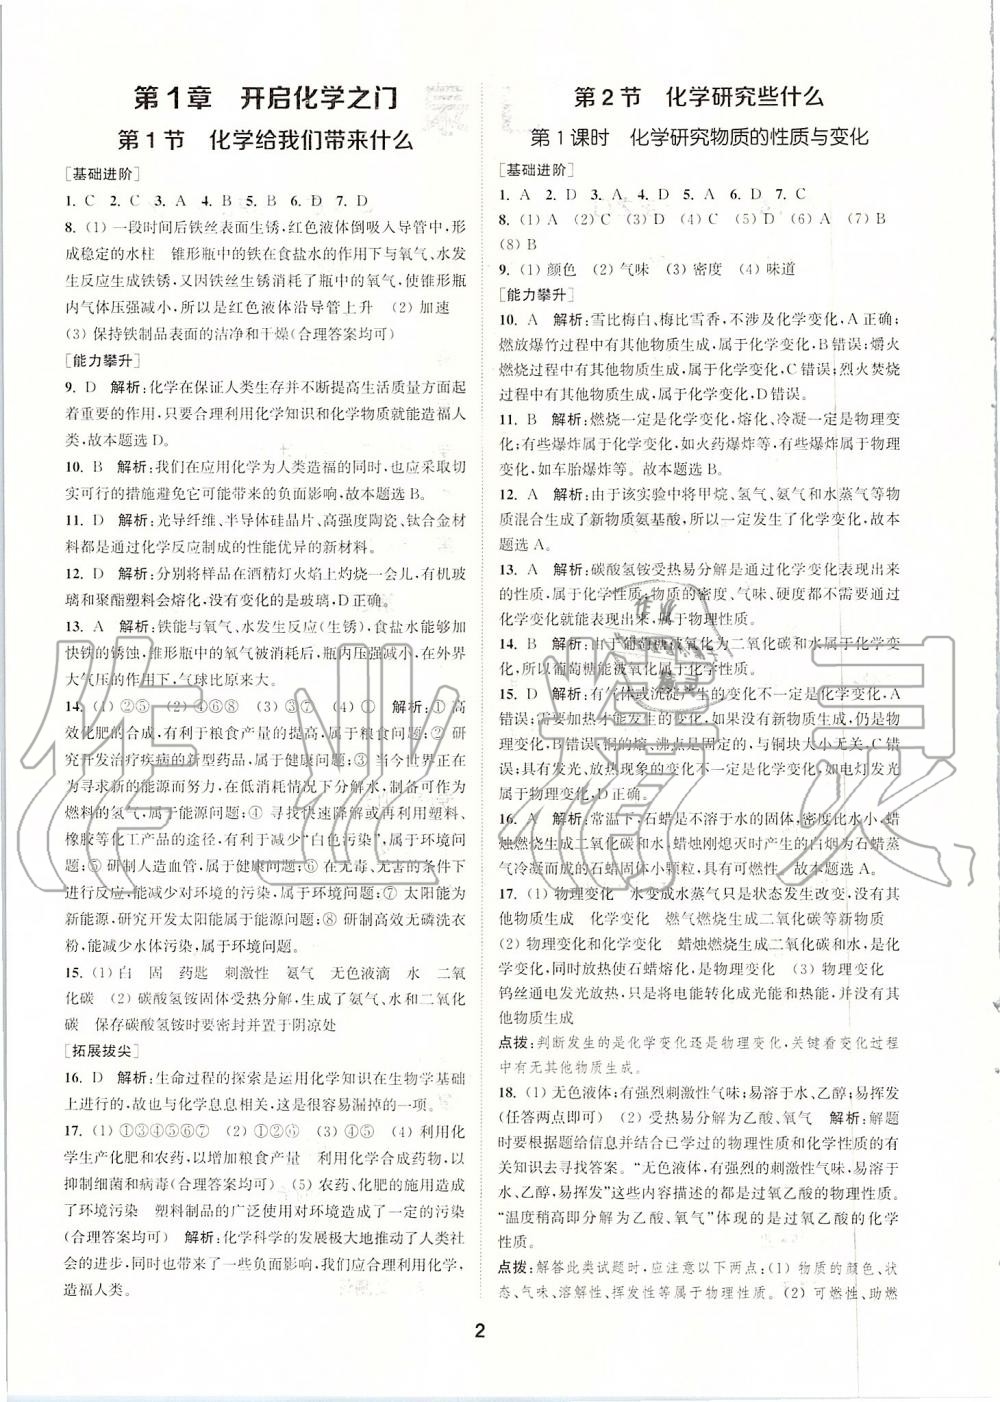 第1章 开启化学之门
第1节 化学给我们带来什么
[基础进阶]
1. C 2. C 3. A 4. B 5. B 6. D 7. D
8. (1) 一段时间后铁丝表面生锈,红色液体倒吸入导管中,形
成稳定的水柱 锥形瓶中的铁在食盐水的作用下与氧气、水发
生反应生成铁锈,又因铁丝生锈消耗了瓶中的氧气,使锥形瓶
内气体压强减小,所以是红色液体沿导管上升 (2) 加速
(3) 保持铁制品表面的洁净和干燥(合理答案均可)
[能力攀升]
9. D 解析:化学在保证人类生存并不断提高生活质量方面起
着重要的作用,只要合理利用化学知识和化学物质就能造福人
类,故本题选D。
10. B 解析:我们在应用化学为人类造福的同时,也应采取切
实可行的措施避免它可能带来的负面影响,故本题选B。
11. D 解析:光导纤维、半导体硅晶片、高强度陶瓷、钛合金材
料都是通过化学反应制成的性能优异的新材料。
12. D 解析:分别将样品在酒精灯火焰上灼烧一会儿,有机玻
璃和聚酯塑料会熔化,没有变化的是玻璃,D正确。
13. A 解析:铁能与氧气、水发生反应(生锈),食盐水能够加
快铁的锈蚀,锥形瓶中的氧气被消耗后,瓶内压强减小,在外界
大气压的作用下,气球比原来大。
14. (1) ②⑤ (2) ④⑥⑧ (3) ③⑦ (4) ① 解析:① 高
效化肥的合成,有利于粮食产量的提高,属于粮食问题;② 研
究开发治疗疾病的新型药品,属于健康问题;③ 当今世界正在
为寻求新的能源而努力,在低消耗情况下分解水,制备可作为
燃料的氢气,属于能源问题;④ 寻找快速降解或再利用塑料、
橡胶等化工产品的途径,有利于减少“白色污染”,属于环境问
题;⑤ 研制人造血管,属于健康问题;⑥ 在无毒、无害的条件下
进行反应,能减少对环境的污染,属于环境问题;⑦ 太阳能为
新能源,研究开发太阳能属于能源问题;⑧ 研制高效无磷洗衣
粉,能减少水体污染,属于环境问题。
15. (1) 白 固 药匙 刺激性 氨气 无色液滴 水 二氧
化碳 (2) 碳酸氢铵固体受热分解,生成了氨气、水和二氧化
碳 保存碳酸氢铵时要密封并置于阴凉处
[拓展拔尖]
16. D 解析:生命过程的探索是运用化学知识在生物学基础
上进行的,故也与化学息息相关,这是很容易漏掉的一项。
17. (1) ①③④⑤⑥⑦ (2) ①②⑥ (3) ④⑤ (4) 利用化
学生产化肥和农药,以增加粮食产量 利用化学合成药物,以
抑制细菌和病毒(合理答案均可) (5) 农药、化肥的施用造成
了环境污染 塑料制品的广泛使用对环境造成了一定的污染
(合理答案均可) 解析:化学科学的发展极大地推动了人类社
会的进步,同时也带来了一些负面影响,我们应合理利用化学,
造福人类。
第2节 化学研究些什么
第1课时 化学研究物质的性质与变化
[基础进阶]
1. A 2. D 3. A 4. D 5. A 6. D 7. C
8. (1) A (2) C (3) D (4) C (5) D (6) A (7) B
(8) B
9. (1) 颜色 (2) 气味 (3) 密度 (4) 味道
[能力攀升]
10. A 解析:雪比梅白、梅比雪香,不涉及化学变化,A正确;
燃放爆竹过程中有其他物质生成,属于化学变化,B错误;爝火
燃烧过程中有其他物质生成,属于化学变化,C错误;烈火焚烧
过程中有其他物质生成,属于化学变化,D错误。
11. B 解析:燃烧一定是化学变化,熔化、冷凝一定是物理变
化;有些爆炸属于化学变化,如火药爆炸等,有些爆炸属于物理
变化,如车胎爆炸等。故本题选B。
12. A 解析:由于该实验中将甲烷、氢气、氨气和水蒸气等物
质混合生成了新物质氨基酸,所以一定发生了化学变化,故本
题选A。
13. A 解析:碳酸氢铵受热易分解是通过化学变化表现出来
的性质,属于化学性质;物质的密度、气味、硬度都不需要通过
化学变化就能表现出来,属于物理性质。
14. B 解析:由于葡萄糖被氧化为二氧化碳和水属于化学变
化,所以葡萄糖能被氧化属于化学性质。
15. D 解析:有气体或沉淀产生的变化不一定是化学变化,A
错误;需要加热才能发生的变化,如果没有新物质生成,仍是物
理变化,B错误;铜的熔、沸点是固定的,与铜块大小无关,C错
误;具有发光、放热现象的变化不一定是化学变化,如电灯发光
属于物理变化,D正确。
16. A 解析:常温下,石蜡是不溶于水的固体,密度比水小,蜡
烛燃烧生成二氧化碳和水,蜡烛刚熄灭时产生的白烟为石蜡蒸
气冷凝而成的石蜡固体小颗粒,具有可燃性。故本题选A。
17. (1) 物理变化 水变成水蒸气只是状态发生改变,没有其
他物质生成 化学变化 燃气燃烧生成二氧化碳等新物质
(2) 物理变化和化学变化 蜡烛燃烧生成二氧化碳和水,是化
学变化,同时放热使石蜡熔化,是物理变化 (3) 物理变化
钨丝通电发光放热,只是将电能转化成光能和热能,并没有其
他物质生成
点拨:判断发生的是化学变化还是物理变化,关键看变化过程
中有无其他物质生成。
18. (1) 无色液体;有强烈刺激性气味;易溶于水、乙醇;易挥发
(任答两点即可) (2) 受热易分解为乙酸、氧气 解析:解题
时要根据题给信息并结合已学过的物理性质和化学性质的有
关知识去寻找答案。“无色液体,有强烈的刺激性气味,易溶于
水、乙醇,易挥发”这些内容描述的都是过氧乙酸的物理性质。
“温度稍高即分解为乙酸、氧气”体现的是过氧乙酸的化学
性质。
点拨:解答此类试题时,应注意以下两点:(1) 物质的颜色、状
态、气味、溶解性、挥发性等属于物理性质。(2) 可燃性、助燃
2
作业精灵